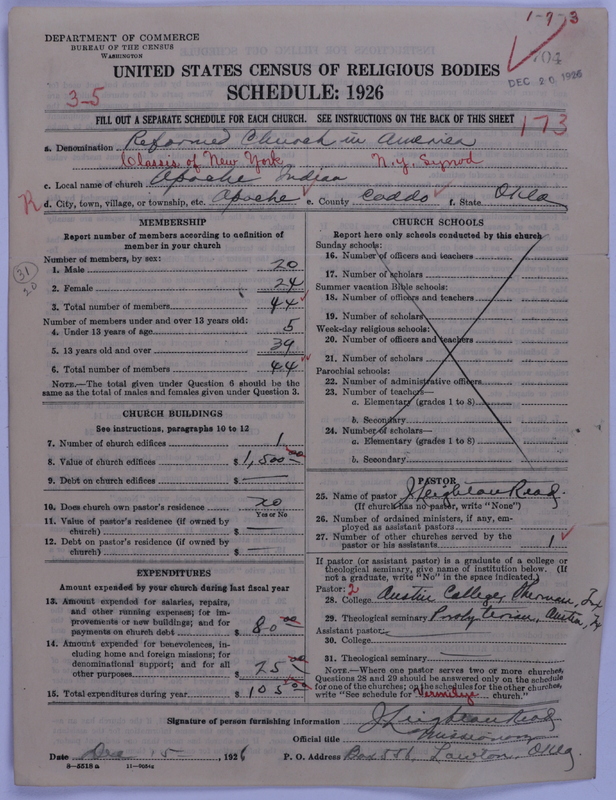 1-7-3
DEPARTMENT OF COMMERCE
BUREAU OF THE CENSUS
WASHINGTON
DEC 20 1926
UNITED STATES CENSUS OF RELIGIOUS BODIES
3-5
SCHEDULE: 1926
FILL OUT A SEPARATE SCHEDULE FOR EACH CHURCH. SEE INSTRUCTIONS ON THE BACK OF THIS SHEET
173
a. Denomination Reformed Church in America
Classis of New York N.Y. Synod
c. Local name of church Apache Indian
R d. City, town, village, or township, etc. Apache e. County Caddo f. State Okla
MEMBERSHIP
Report number of members according to definition of
member in your church
Number of members, by sex:
1. Male 20
31
20
2. Female 24
3. Total number of members 44
Number of members under and over 13 years old:
4. Under 13 years of age 5
5. 13 years old and over 39
6. Total number of members 44
NOTE.—The total given under Question 6 should be the
same as the total of males and females given under Question 3.
CHURCH BUILDINGS
See instructions, paragraphs 10 to 12
7. Number of church edifices 1
8. Value of church edifices $ 1,500.00
9. Debt on church edifices $ —
10. Does church own pastor's residence no
Yes or No
11. Value of pastor's residence (if owned by
church) $ —
12. Debt on pastor's residence (if owned by
church) $ —
EXPENDITURES
Amount expended by your church during last fiscal year
13. Amount expended for salaries, repairs,
and other running expenses; for im-
provements or new buildings; and for
payments on church debt $ 80.00
14. Amount expended for benevolences, in-
cluding home and foreign missions; for
denominational support; and for all
other purposes $ 25.00
15. Total expenditures during year $ 105.00
CHURCH SCHOOLS
Report here only schools conducted by this church
Sunday schools:
16. Number of officers and teachers
17. Number of scholars
Summer vacation Bible schools:
18. Number of officers and teachers
19. Number of scholars
Week-day religious schools:
20. Number of officers and teachers
21. Number of scholars
Parochial schools:
22. Number of administrative officers
23. Number of teachers—
a. Elementary (grades 1 to 8)
b. Secondary
24. Number of scholars—
a. Elementary (grades 1 to 8)
b. Secondary
PASTOR
25. Name of pastor J. Leighton Read
(If church has no pastor, write "None")
26. Number of ordained ministers, if any, em-
ployed as assistant pastors
27. Number of other churches served by the
pastor or his assistants 1
If pastor (or assistant pastor) is a graduate of a college or
theological seminary, give name of institution below. (If
not a graduate, write "No" in the space indicated.)
Pastor: 2
28. College Austin College, Sherman, Tx
29. Theological seminary Presbyterian, Austin, Tx
Assistant pastor:
30. College
31. Theological seminary
NOTE.—Where one pastor serves two or more churches,
Questions 28 and 29 should be answered only on the schedule
for one of the churches; on the schedules for the other churches,
write "See schedule for Vermilye church."
Signature of person furnishing information J. Leighton Read
Official title Missionary
Date Dec 15 , 1926 P. O. Address Box 556 Lawton, Okla.
8-5518 a 11-9054a